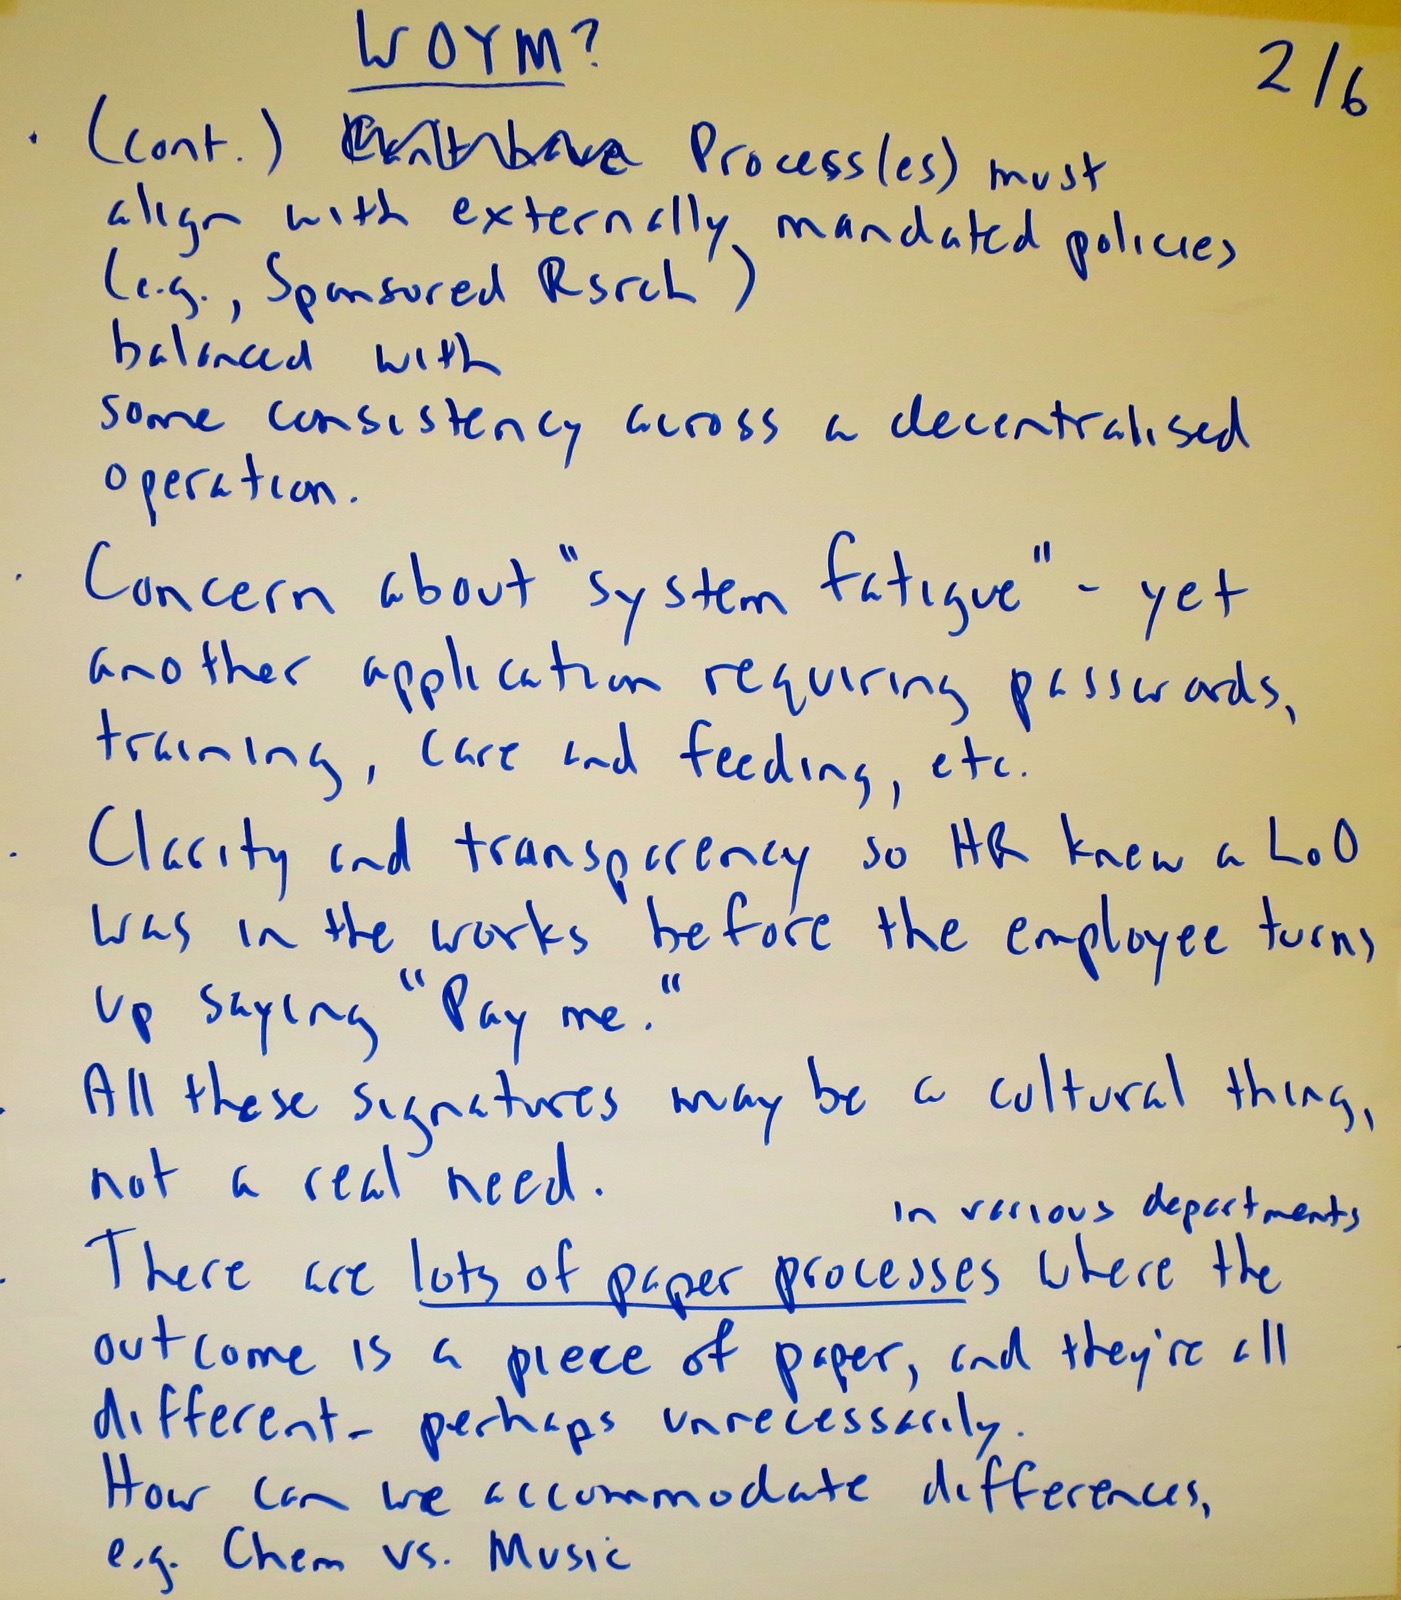 WOYM?
2/6
· (cont.) Process(es) must
align with externally mandated policies
(e.g., Sponsored Rsrch)
balanced with
some consistency across a decentralised
operation.
· Concern about "system fatigue" - yet
another application requiring passwords,
training, care and feeding, etc.
· Clarity and transparency so HR knew a LoO
was in the works before the employee turns
up saying "Pay me."
· All these signatures may be a cultural thing,
not a real need.
in various departments
· There are lots of paper processes where the
outcome is a piece of paper, and they're all
different - perhaps unnecessarily.
How can we accommodate differences,
e.g. Chem vs. Music